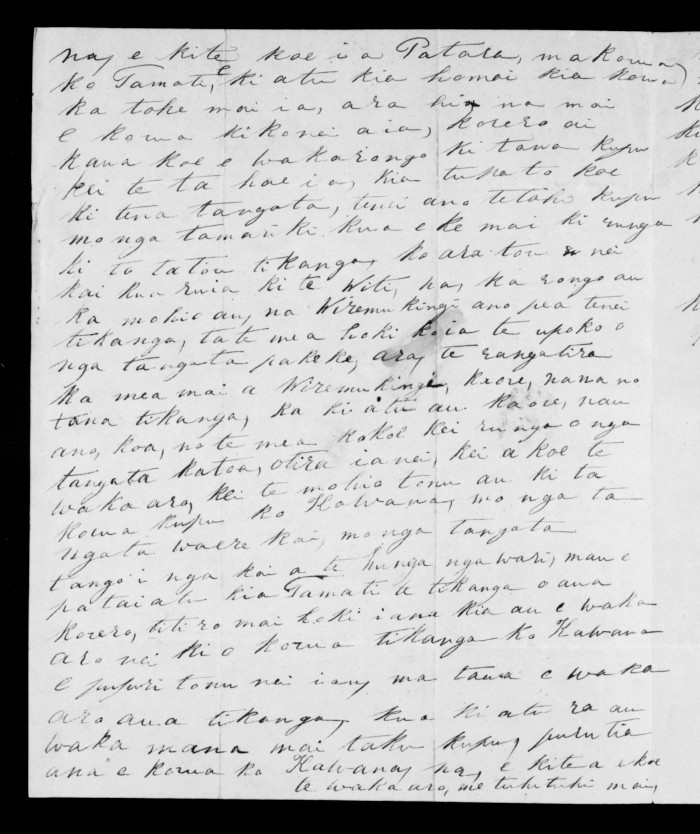 na, e kite koe i a Patara, ma korua
ko Tamati, e ki atu kia homai kia korua
ka tohe mai ia, ara hia na mai
e korua ki konei aia, korero ai
kaua koe e wakarongo ki tana kupu
kei te ta hae ia, kia tupato koe
ki tena tangata, tenei ano tetahi kupu
mo nga tamariki kua eke mai ki runga
ki ta tatou tikanga, ko ara tou nei
kai kua ruia ki te Witi, na, ka rongo au
ka mohio au, na Wiremukingi ano pea tenei
tikanga, ta te mea hoki ko ia te upoko o
nga tangata pakeke, ara, te rangatira
Ka mea mai a Wiremukingi, kaore, nana no
tana tikanga, ka ki atu au kaore, nau
ano, koa, no te mea ko koe kei runga o nga
tangata katoa, otira ianei, kei a koe te
wakaaro, kei te mohio tonu au ki ta
korua kupu ko Kawana, mo nga ta-
ngata waere kai, mo nga tangata
tango i nga kai a te hunga ngawari, mau e
pataiatu kia Tamati te tikanga o ana
korero, titiro mai hoki i ana kia au e waka
aro nei ki o korua tikanga ko Kawana
e pupuri tonu nei i au, ma taua e waka
aro aua tikanga, kua ki atu ra au
waka mana mai taku kupu, purutia
ana e korua ko Kawana, na, e kite a koe
te wakaaro, me tuhituhi mai,